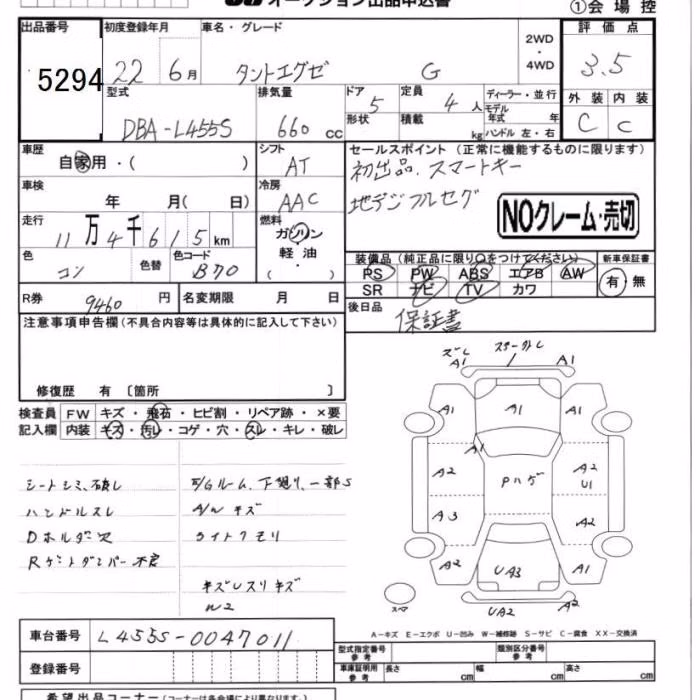 オークション出品申込書
①会場控
出品番号 初度登録年月 車名・グレード 2WD・4WD 評価点
5294 22 6月 タントエグゼ G 3.5
型式 排気量 ドア 5 定員 4人 ディーラー・並行 外装 内装
DBA-L455S 660 cc 形状 積載 kg モデル年式 年 ハンドル 左・右 C C
車歴 シフト セールスポイント(正常に機能するものに限ります)
自家用・( ) AT 初出品.スマートキー
車検 冷房 地デジフルセグ
年 月( 日) AAC NOクレーム・売切
走行 燃料
11万4千615km ガソリン
軽油
( ・ )
色 色替 色コード 装備品(純正品に限り○をつけてください) 新車保証書
コン B70 PS PW ABS エアB AW 有・無
SR ナビ TV カワ
R券 9460円 名変期限 月 日 後日品
保証書
注意事項申告欄(不具合内容等は具体的に記入して下さい)
修復歴 有〔箇所 〕
検査員 FW キズ・飛石・ヒビ割・リペア跡・×要
記入欄 内装 キズ・汚れ・コゲ・穴・スレ・キレ・破レ
ズレ A1 A1
A1 A1 A1
A2 Pハゲ A2 U1
A3 A2
A1 UA3 A1
スペア UA2 A2
シートシミ、破レ
ハンドルスレ A/Wキズ
Dホルダ欠 ライトクモリ
キズレスリキズ
A-キズ E-エクボ U-凹み W-補修跡 S-サビ C-腐食 XX-交換済
車台番号 L455S-0047011 型式指定番号 参考 類別区分番号 参考
登録番号 車庫証明用 参考 長さ cm 幅 cm 高さ cm
希望出品コーナー(コーナーは各会場により異なります)